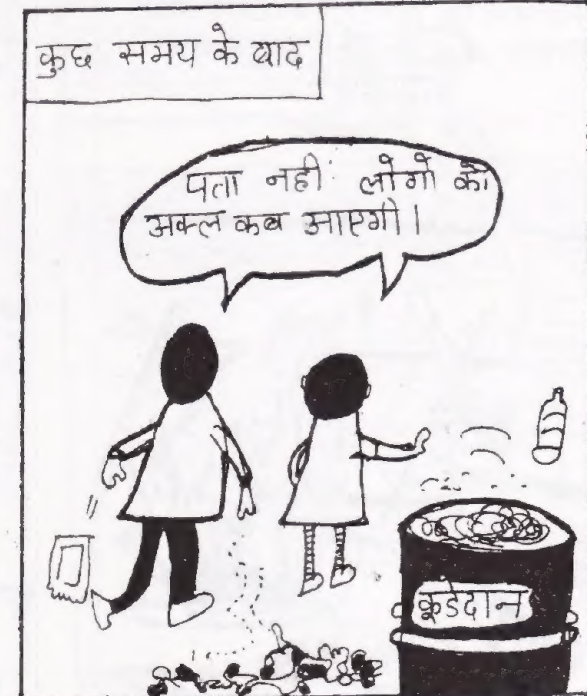 कुछ समय के बाद
पता नहीं लोगों को
अक्ल कब आएगी।
कूडेदान